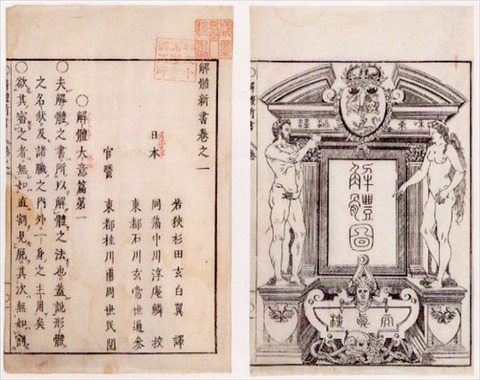 解體新書卷之一
若狹 杉田玄白翼 譯
日本 同藩 中川淳庵鱗 校
東都 石川玄常世通 參
官醫 東都 桂川甫周世民 閱
〇解體大意篇第一
〇夫解體之書所以解體之法也蓋說形體
之名狀及諸臟之內外一身之主用矣
欲其審之者無如直割見屍其次無如割
解體圖
天真樓